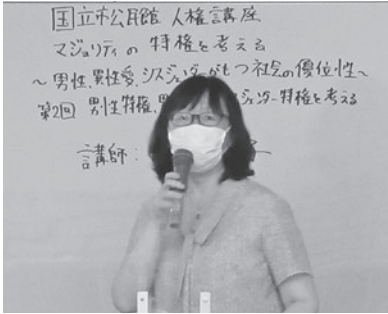 国立市公民館 人権講座
マジョリティの特権を考える
～男性、異性愛、シスジェンダーがもつ社会の優位性～
第2回 男性特権、 ジェンダー特権を考える
講師: